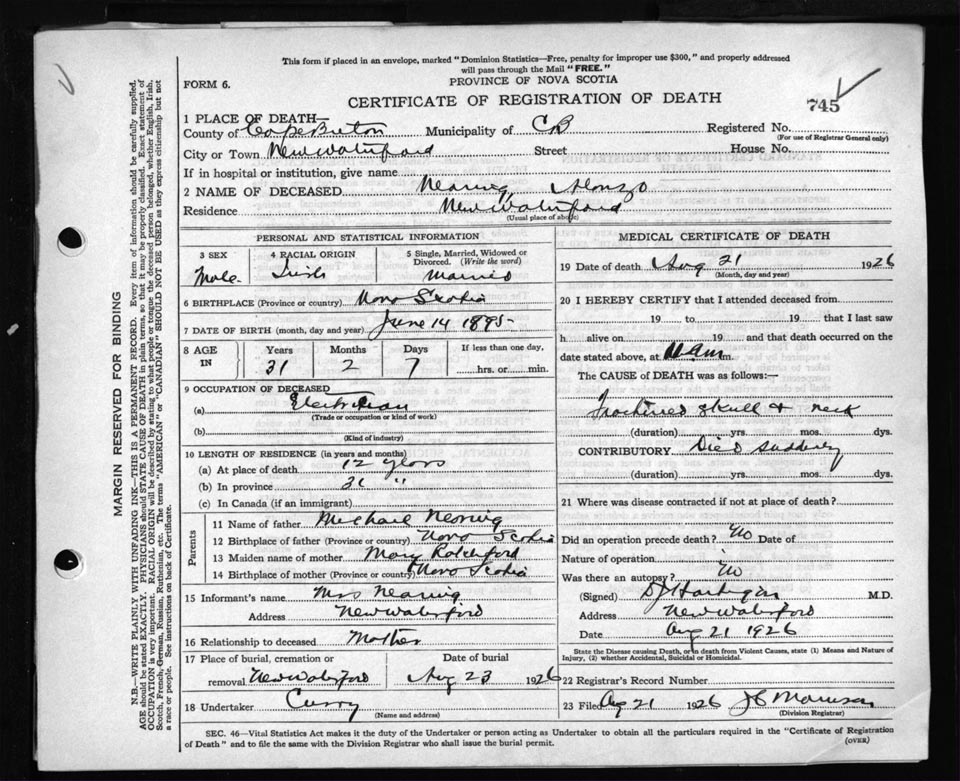 This form if placed in an envelope, marked "Dominion Statistics—Free, penalty for improper use $300," and properly addressed
will pass through the Mail "FREE."
FORM 6.
PROVINCE OF NOVA SCOTIA
CERTIFICATE OF REGISTRATION OF DEATH
745
1 PLACE OF DEATH—
County of Cape Breton Municipality of CB Registered No.
(For use of Registrar General only)
City or Town New Waterford Street House No.
If in hospital or institution, give name
2 NAME OF DECEASED Nearing, Alonzo
Residence New Waterford
(Usual place of above)
PERSONAL AND STATISTICAL INFORMATION
3 SEX 4 RACIAL ORIGIN 5 Single, Married, Widowed or Divorced. (Write the word)
Male Irish Married
6 BIRTHPLACE (Province or country) Nova Scotia
7 DATE OF BIRTH (month, day and year) June 14 1895
8 AGE IN Years Months Days If less than one day,
31 2 7 hrs. or min.
9 OCCUPATION OF DECEASED
(a) Electrician
(Trade or occupation or kind of work)
(b)
(Kind of industry)
10 LENGTH OF RESIDENCE (in years and months)
(a) At place of death 12 years
(b) In province 31 "
(c) In Canada (if an immigrant)
Parents
11 Name of father Michael Nearing
12 Birthplace of father (Province or country) Nova Scotia
13 Maiden name of mother Mary
14 Birthplace of mother (Province or country) Nova Scotia
15 Informant's name Mrs Nearing
Address New Waterford
16 Relationship to deceased Mother
17 Place of burial, cremation or Date of burial
removal New Waterford Aug 23 1926
18 Undertaker Curry
(Name and address)
MEDICAL CERTIFICATE OF DEATH
19 Date of death Aug 21 1926
(Month, day and year)
20 I HEREBY CERTIFY that I attended deceased from
19 to 19 that I last saw
h alive on 19 and that death occurred on
date stated above, at 11 am m.
The CAUSE of DEATH was as follows:—
Fractured skull & neck
(duration) yrs. mos. dys.
CONTRIBUTORY Died suddenly
(duration) yrs. mos. dys.
21 Where was disease contracted if not at place of death?
Did an operation precede death? No Date of
Nature of operation
Was there an autopsy? No
(Signed) M.D.
Address New Waterford
Date Aug 21 1926
State the Disease causing Death, or in death from Violent Causes, state (1) Means and Nature of
Injury, (2) whether Accidental, Suicidal or Homicidal.
22 Registrar's Record Number
23 Filed Aug 21 1926
(Division Registrar)
SEC. 46—Vital Statistics Act makes it the duty of the Undertaker or person acting as Undertaker to obtain all the particulars required in the "Certificate of Registration
of Death" and to file the same with the Division Registrar who shall issue the burial permit.
(OVER)
MARGIN RESERVED FOR BINDING
N.B.—WRITE PLAINLY WITH UNFADING INK—THIS IS A PERMANENT RECORD. Every item of information should be carefully supplied.
AGE should be stated EXACTLY. PHYSICIANS should STATE CAUSE OF DEATH in plain terms, so that it may be properly classified. Exact statement of
OCCUPATION is very important. RACIAL ORIGIN will be described by stating to what people or tongue the deceased person belonged, whether English, Irish,
Scotch, French, German, Russian, Ruthenian, etc. The terms "AMERICAN" or "CANADIAN" SHOULD NOT BE USED as they express citizenship but not
a race or people. See instructions on back of Certificate.